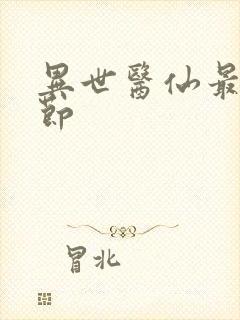 異世醫仙最
節
冒北